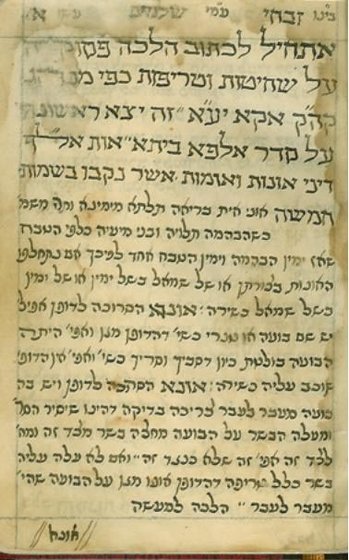 זבחי שלמים
אתחיל לכתוב הלכה פסוקה
על שחיטות וטריפות כפי
קה"ק אקא יע"א זה יצא ראשונה
על סדר אלפא ביתא אות
דיני אונות ואומות אשר נקבו בשמות
חמשה אוני אית בריאה תלתא מימינא
כשהבהמה תלויה ובני מיעיה כלפי הטבח
שאז ימין הבהמה וימין הטבח אחד לפיכך אם נתחלפו
האונות או של שמאל בשל ימין או של ימין
בשל שמאל כשירה אונא הסרוכה לדופן אפילו
יש שם בועה או מדהדופן מגן ואפי' היתה
הבועה בולטת כיון דסביך וסריך ואפי' אין הדופן
שוכב עליה כשירה אונא הסרוכה לדופן ויש בה
בועה מעבר לעבר צריכה בדיקה דהינו שיסיר
ומעלה הבשר על הבועה מחלה בשר מצד זה ומחצה
מצד זה אפי' זה שלא כנגד זה ואם לא עלה עליה
בשר כלל טריפה דהדופן אינו מגן על הבועה שהיא
מעבר לעבר הלכה למעשה
אונא